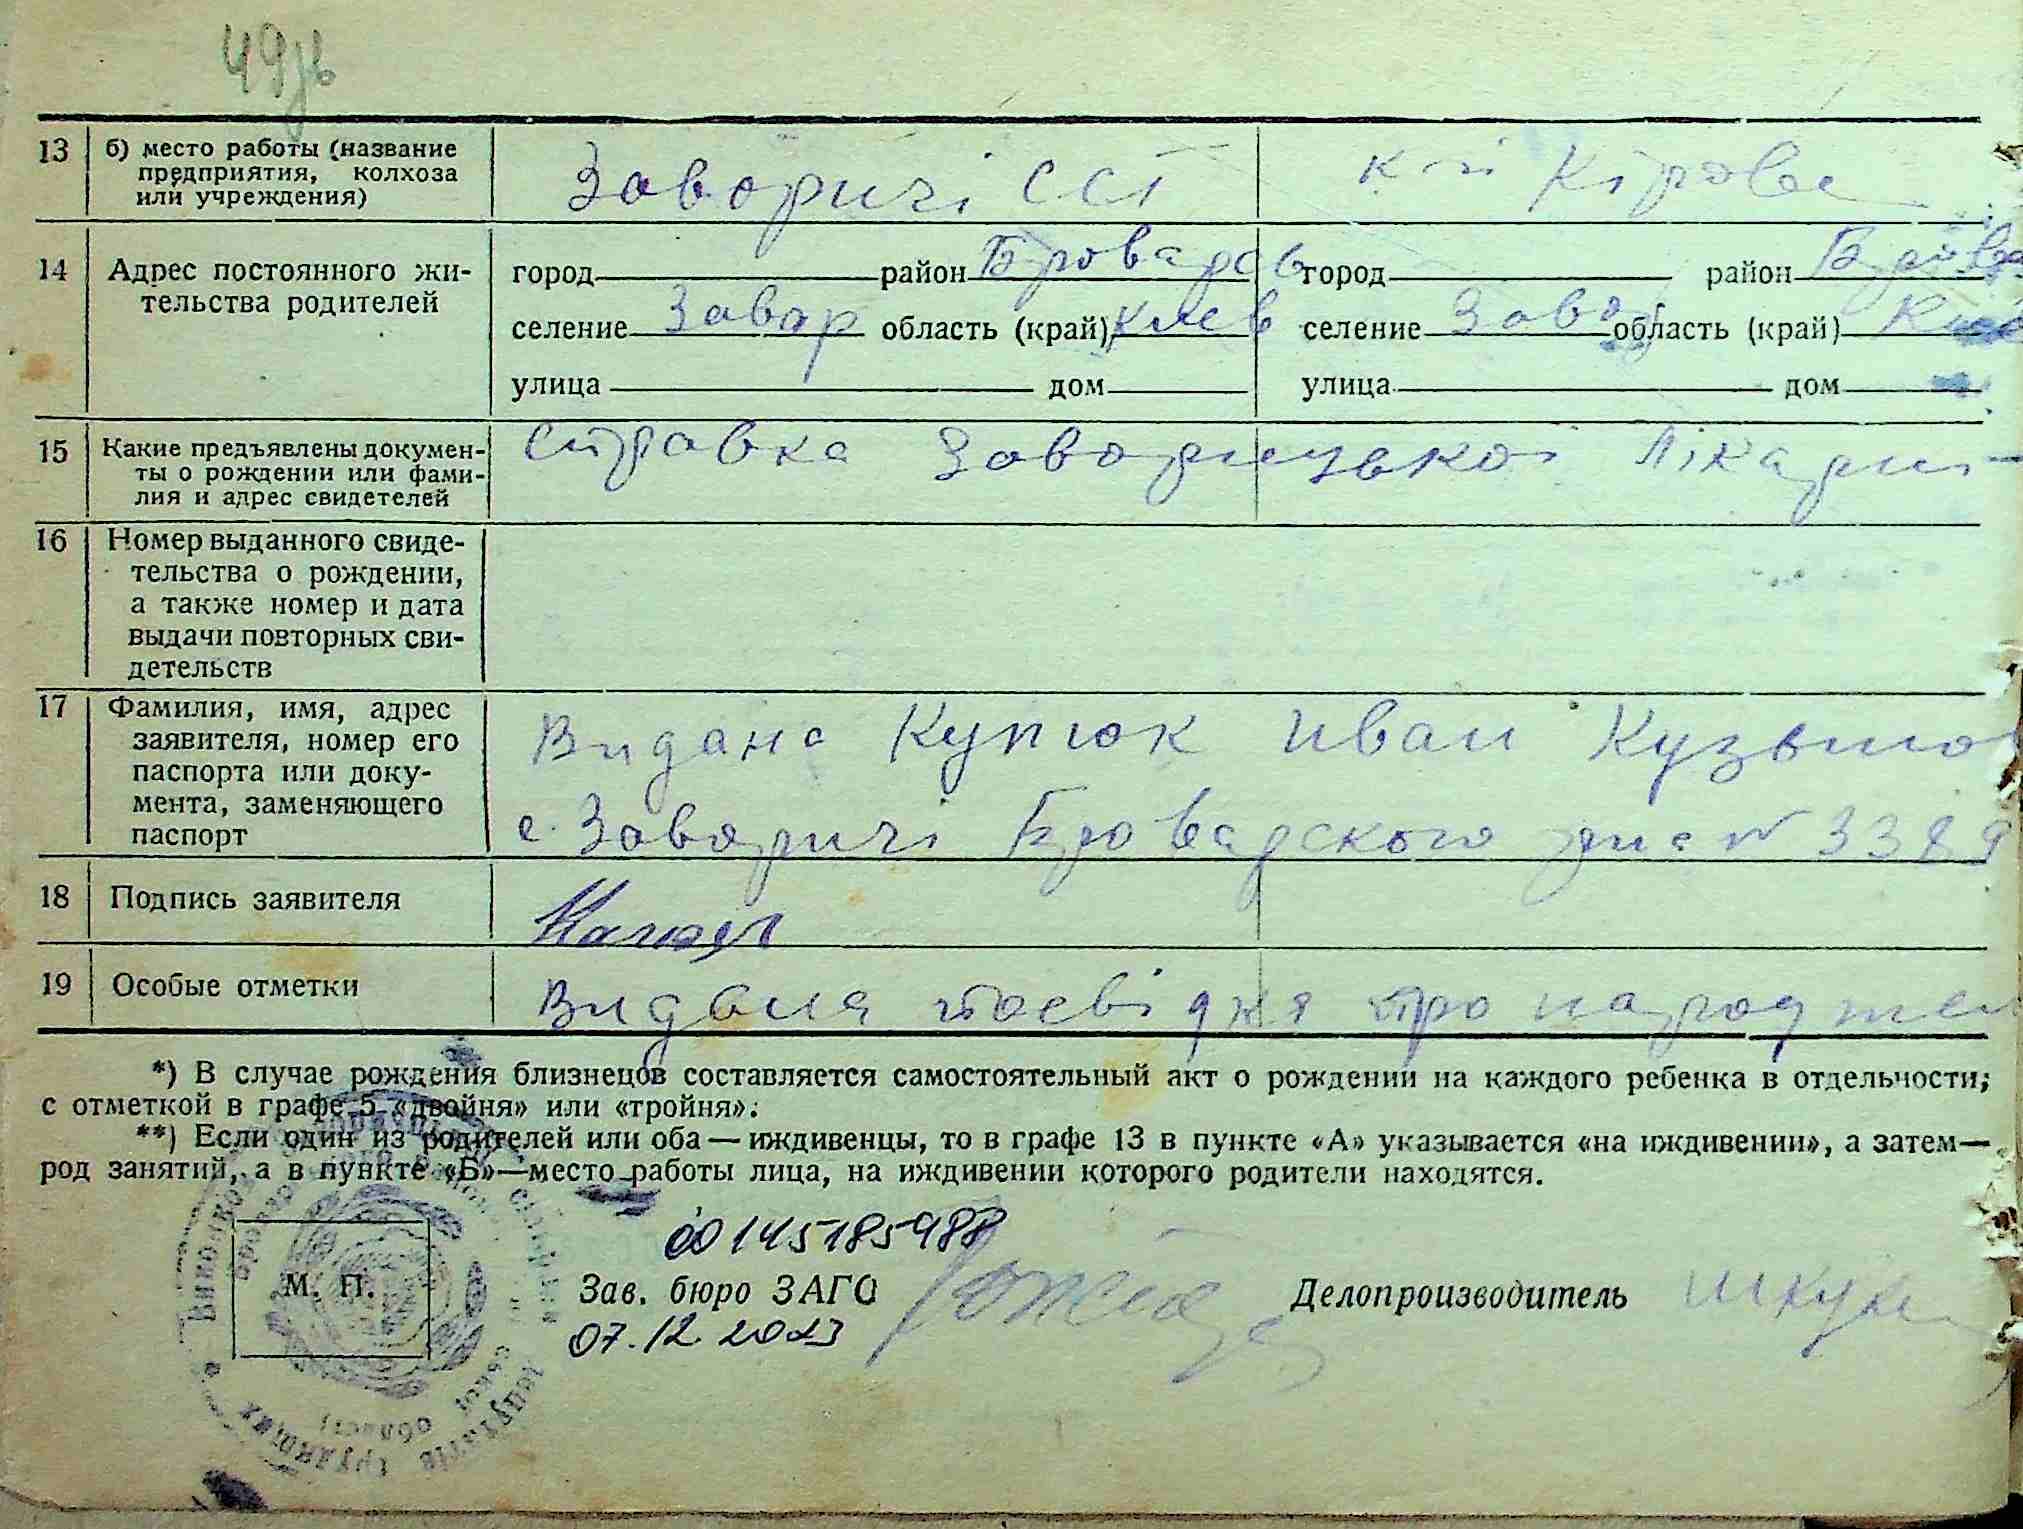 13 б) место работы (название Заворичі ССТ к-п Кірова
предприятия, колхоза
или учреждения)
14 Адрес постоянного жи- город район Броварс город район
тельства родителей селение Завор область (край) Киев селение Заво область (край)
улица дом улица дом
15 Какие предъявлены докумен- справка Заворицької лікарні
ты о рождении или фами-
лия и адрес свидетелей
16 Номер выданного свиде-
тельства о рождении,
а также номер и дата
выдачи повторных сви-
детельств
17 Фамилия, имя, адрес Видана Купюк Иван
заявителя, номер его
паспорта или доку-
мента, заменяющего с. Заворичі Броварского № 3389
паспорт
18 Подпись заявителя
19 Особые отметки про народжен
*) В случае рождения близнецов составляется самостоятельный акт о рождении на каждого ребенка в отдельности;
с отметкой в графе 5 «двойня» или «тройня».
**) Если один из родителей или оба — иждивенцы, то в графе 13 в пункте «А» указывается «на иждивении», а затем—
род занятий, а в пункте «Б»—место работы лица, на иждивении которого родители находятся.
00145185988
М. П. Зав. бюро ЗАГС Делопроизводитель
07.12.2023